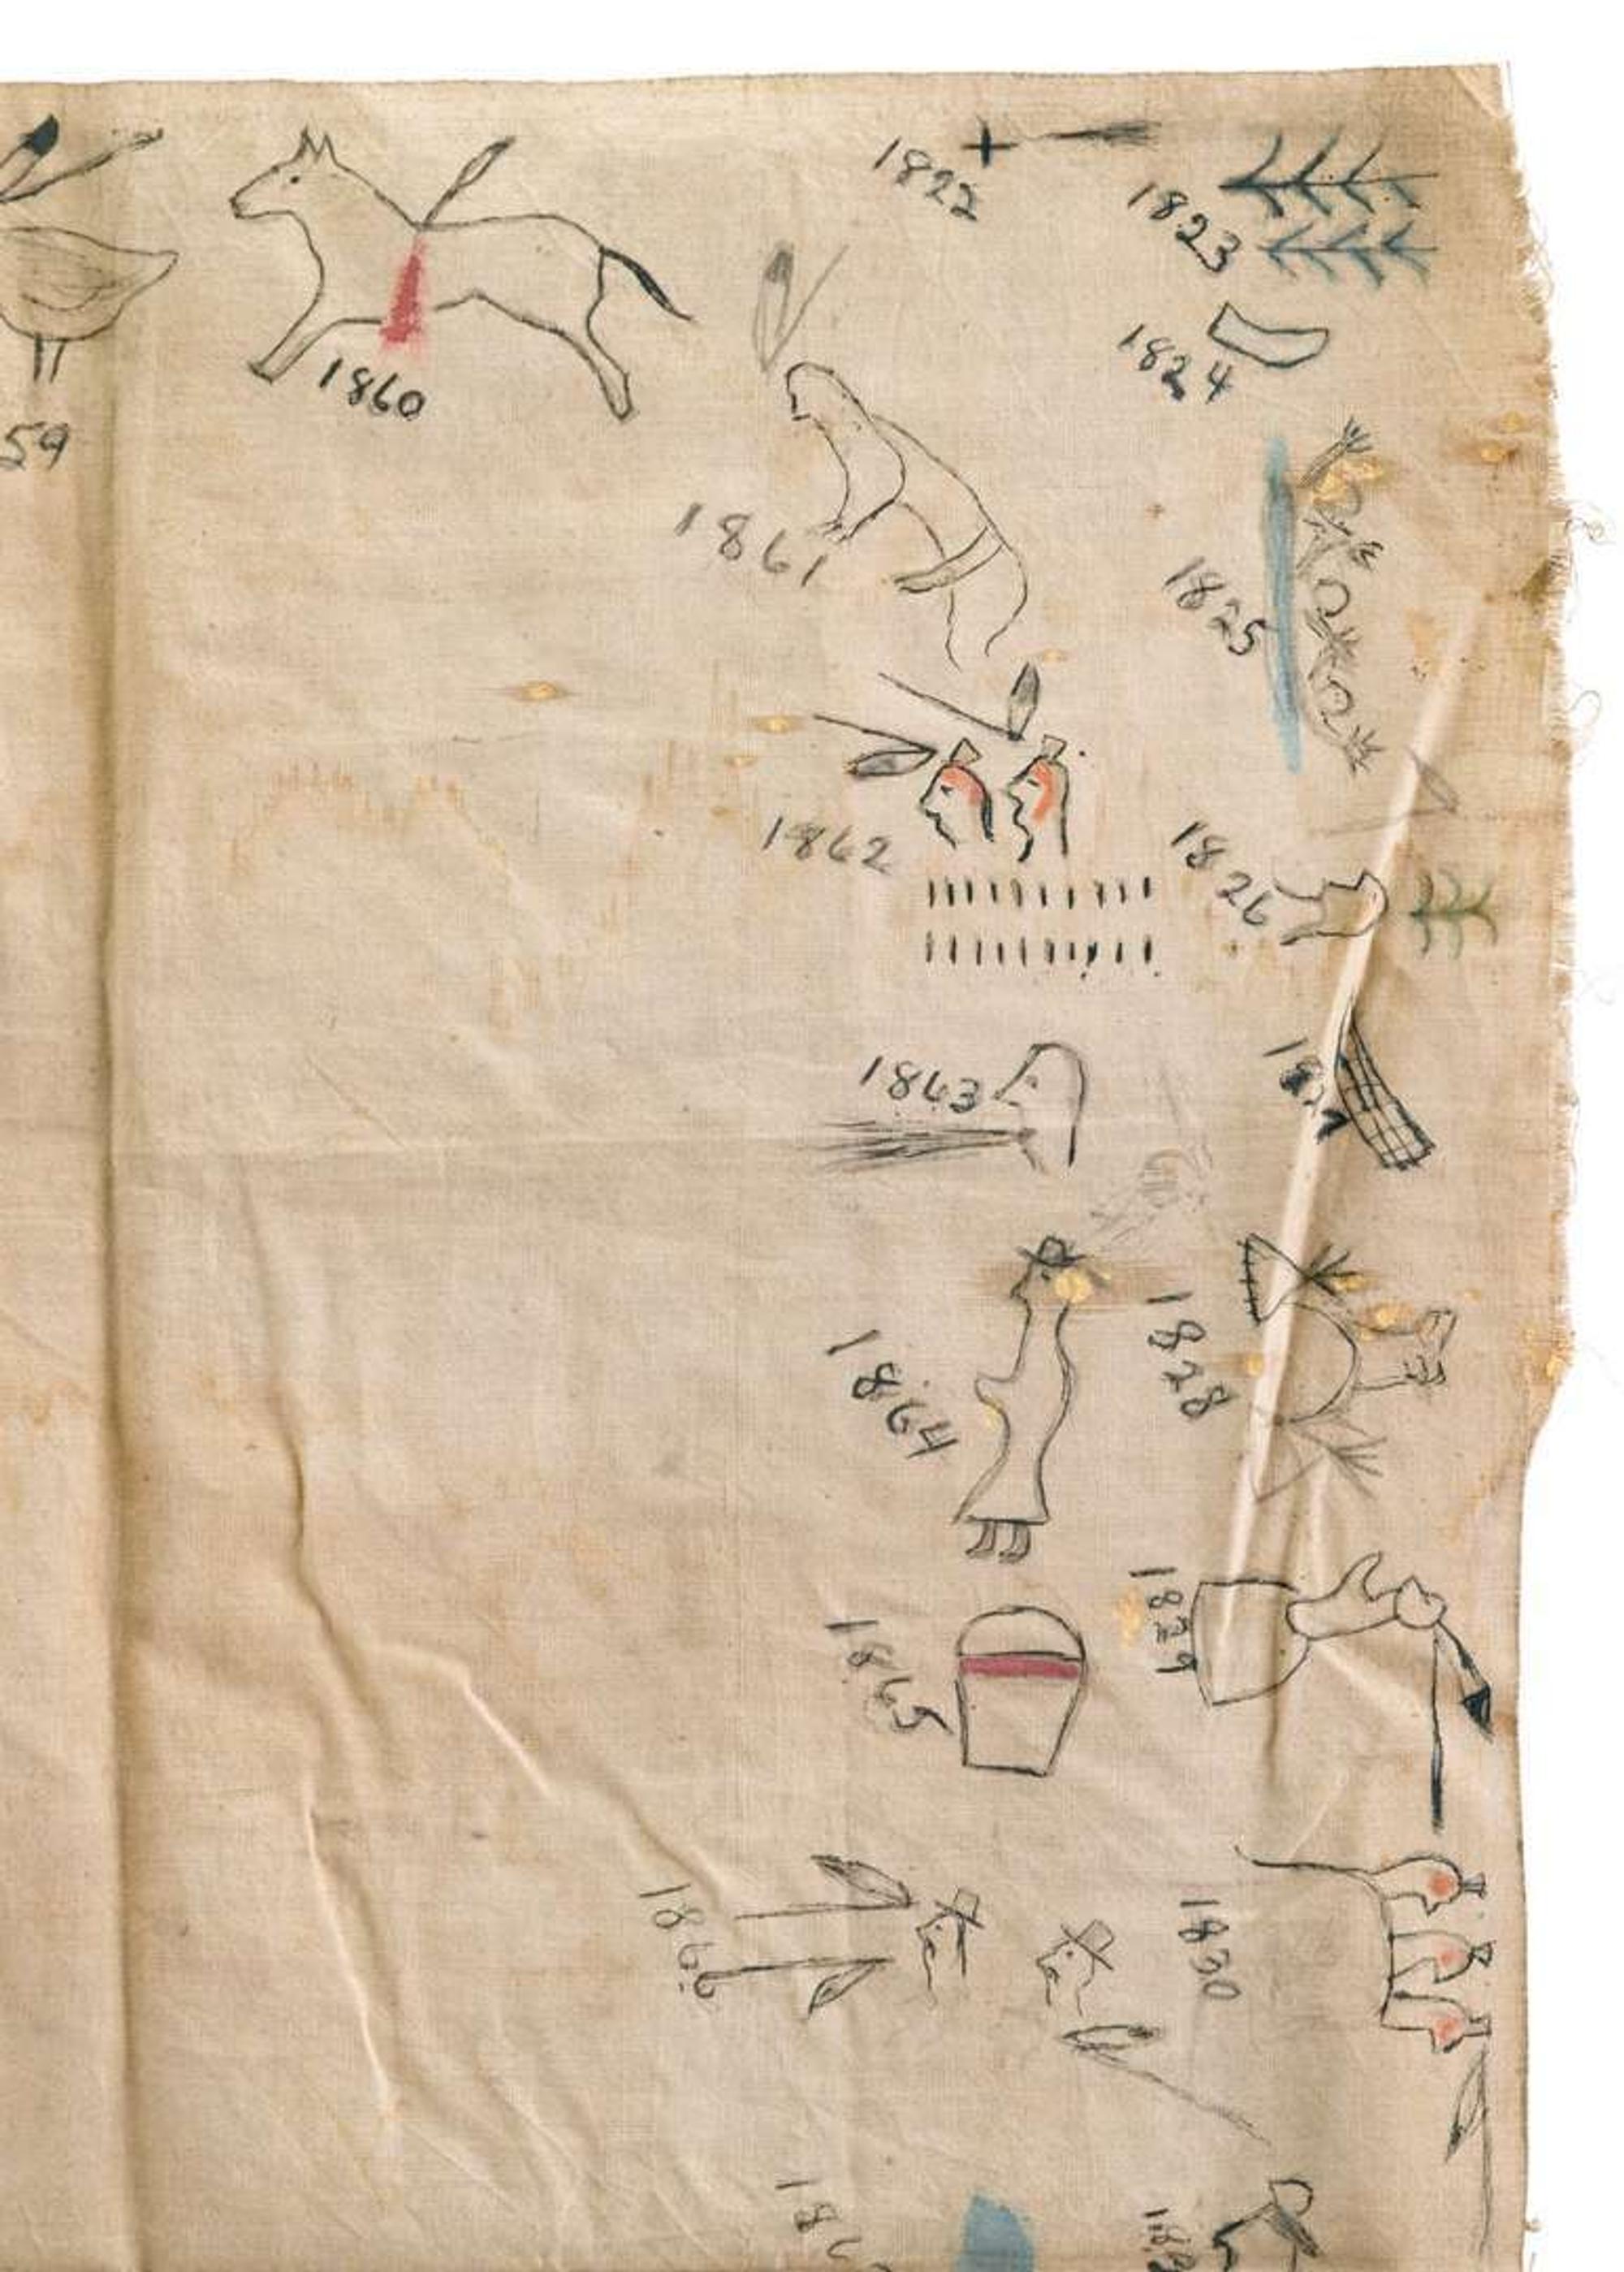 1822
1823
1824
1825
1826
1828
1829
1830
59
1860
1861
1862
1863
1864
1865
1866